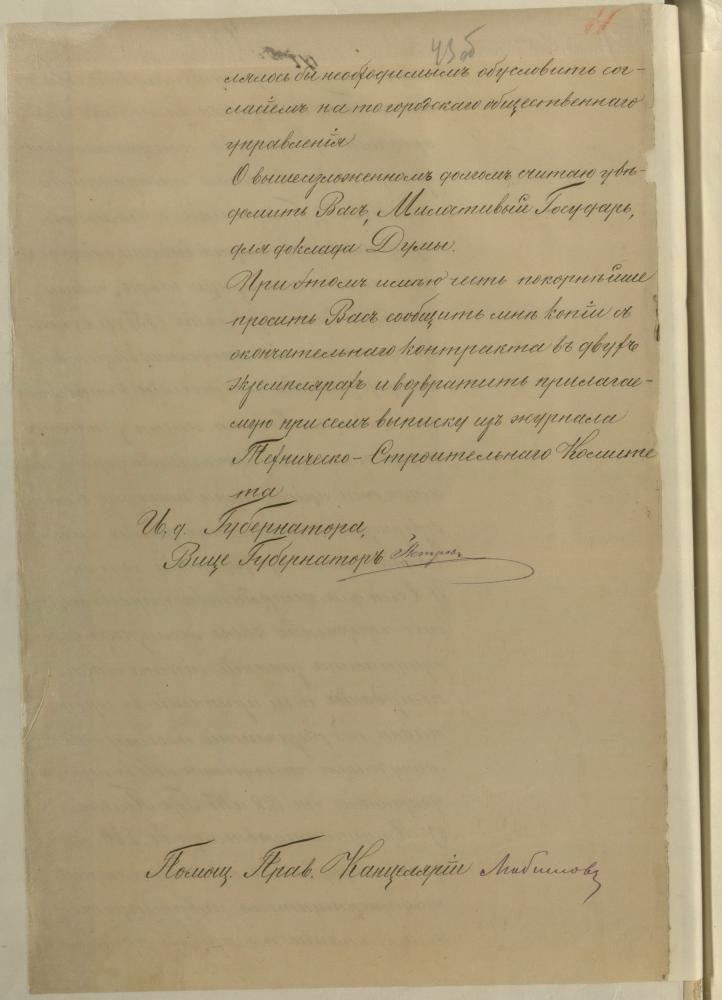 43 об
лялось бы необходимымъ обусловить сог-
ласіемъ на то городскаго общественнаго
управленія
О вышеизложенномъ долгомъ считаю увѣ-
домить Васъ, Милостивый Государь,
для доклада Думы.
При этомъ имѣю честь покорнѣйше
просить Васъ сообщить мнѣ копіи съ
окончательнаго контракта въ двухъ
экземплярахъ и возвратить прилагае-
мую при семъ выписку изъ журнала
Техническо-Строительнаго Комите
та
И. д. Губернатора,
Вице Губернаторъ Петровъ
Помощ. Прав. Канцеляріи Любимовъ